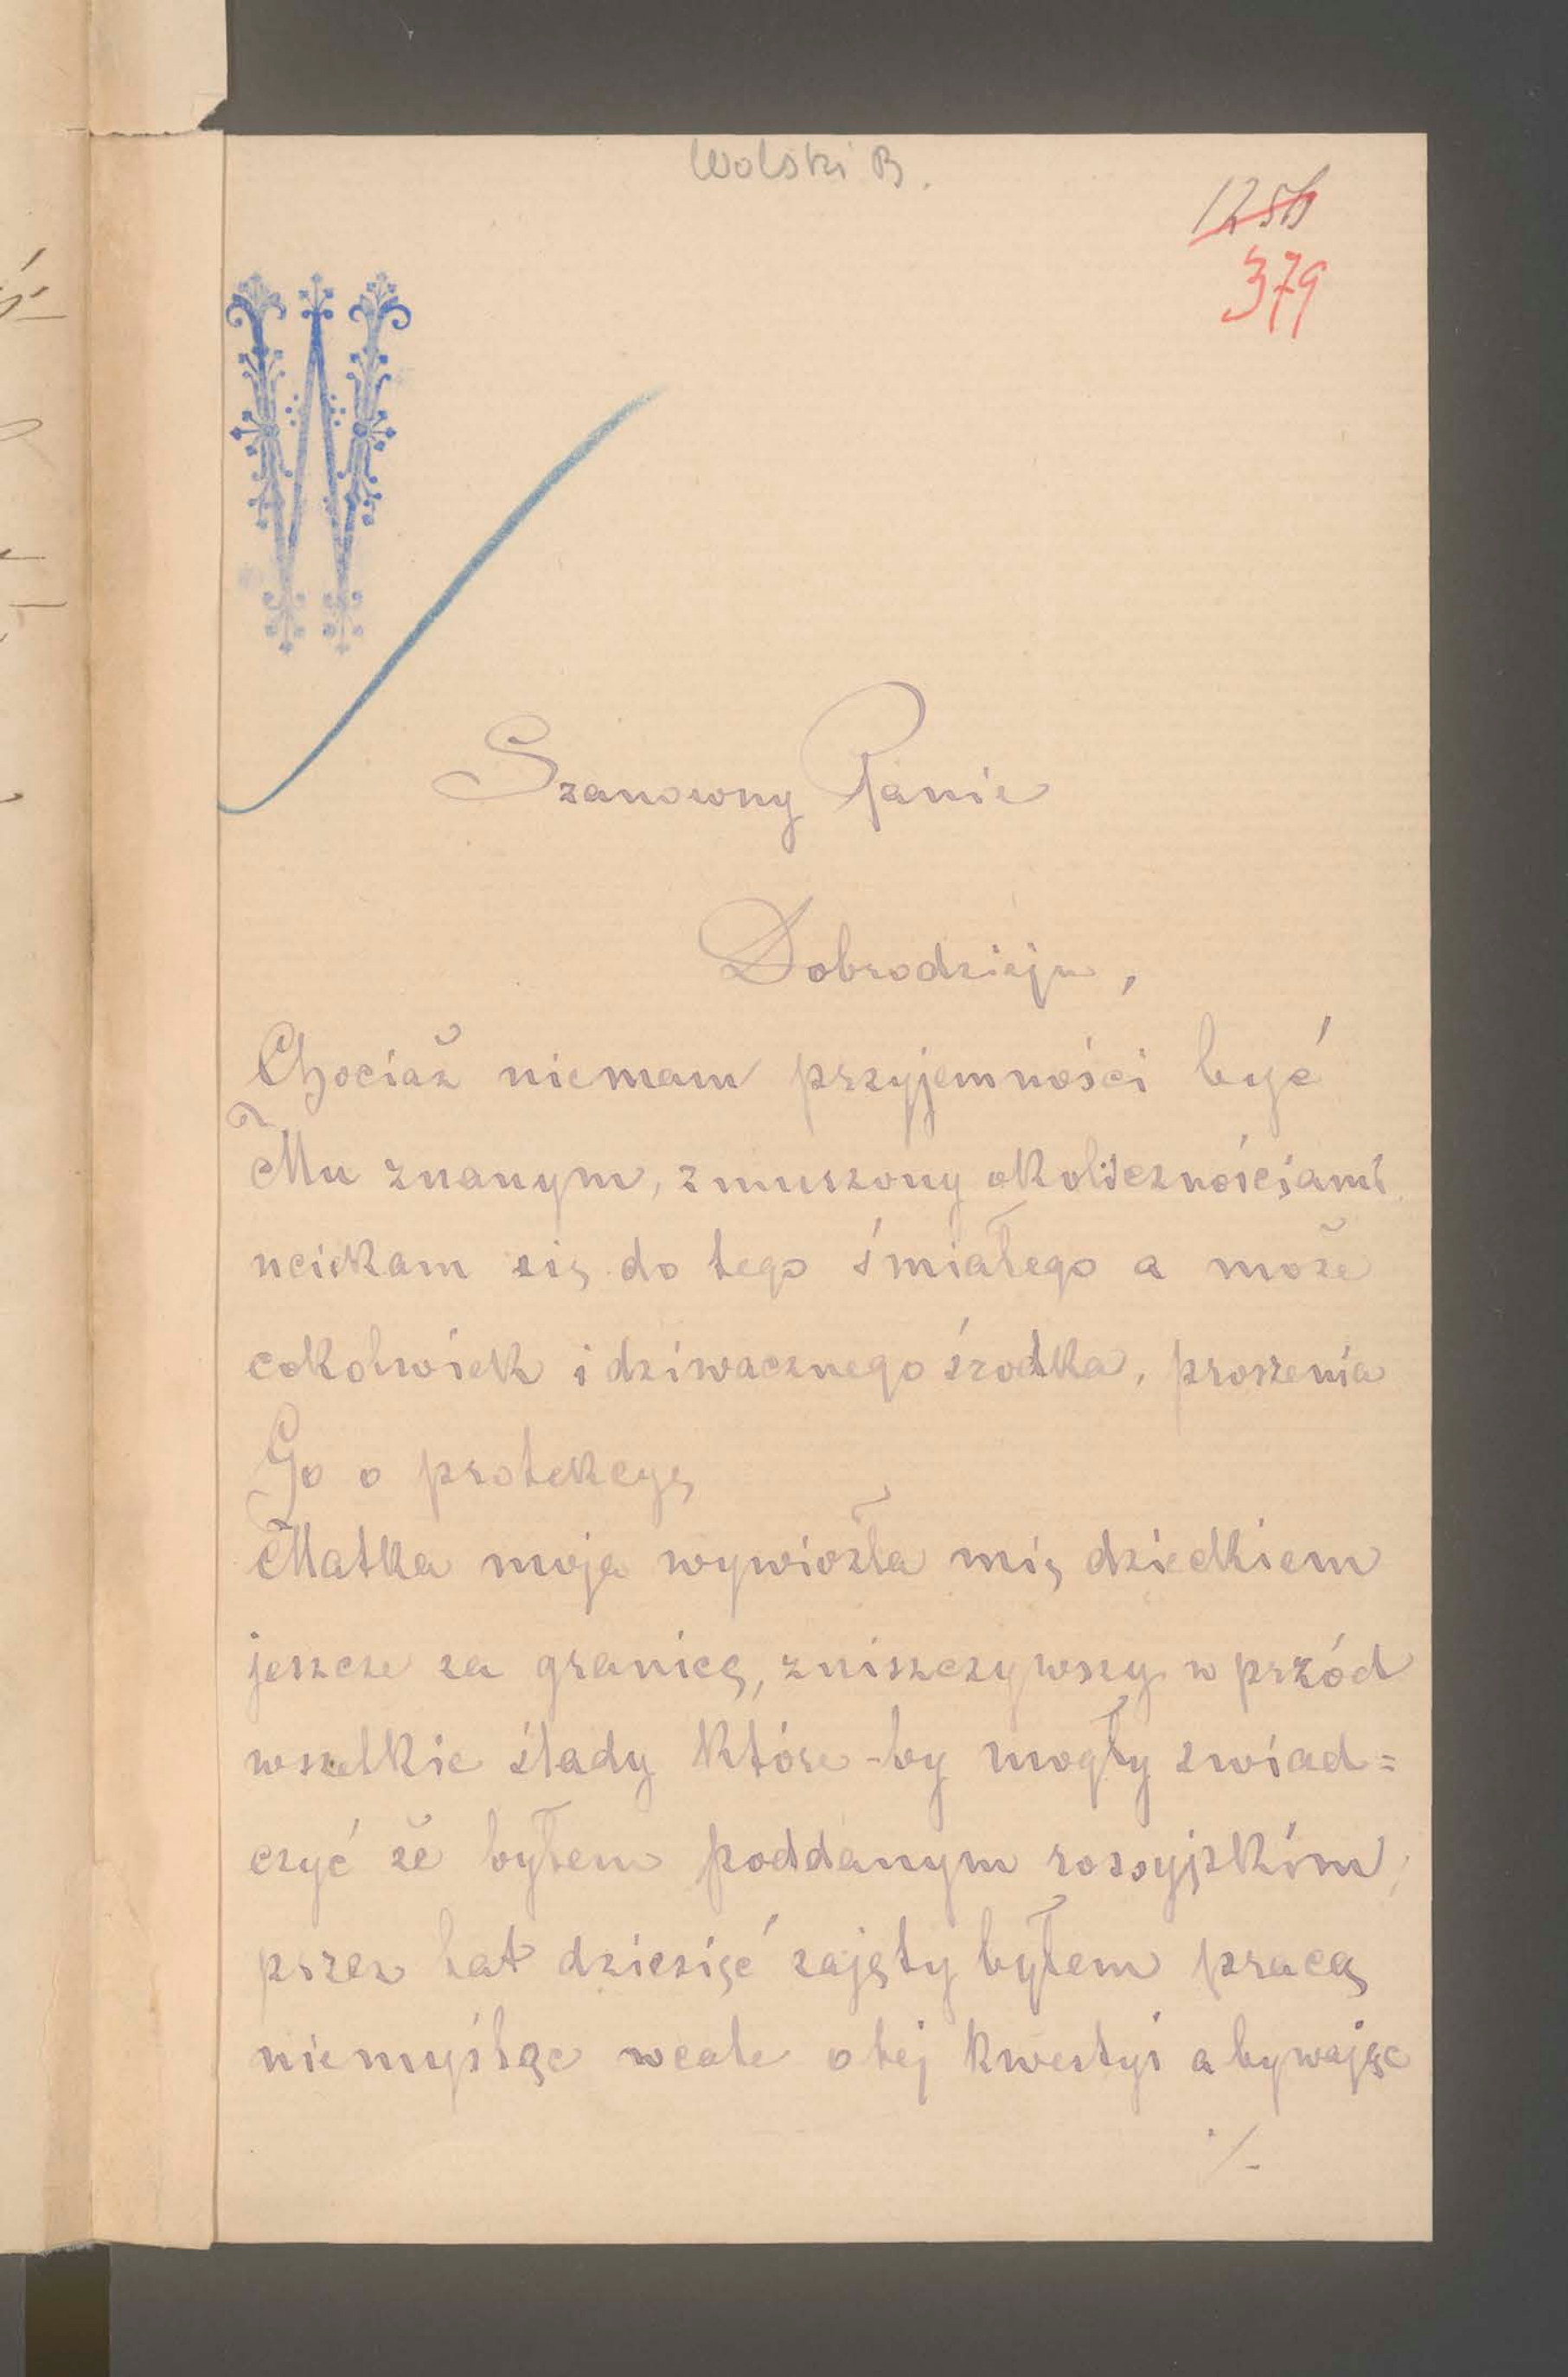 Wolski B.
1256
379
W
Szanowny Panie
Dobrodzieju,
Chociaż niemam przyjemności być
Mu znanym, zmuszony okolicznościami
uciekam się do tego śmiałego a może
cokolwiek i dziwacznego środka, proszenia
Go o protekcyę
Matka moja wywiozła mię dzieckiem
jeszcze za granicę, zniszczywszy w przód
wszelkie ślady które-by mogły swiad=
czyć że byłem poddanym rossyjskim,
przez lat dziesięć zajęty byłem pracą
niemyśląc wcale o tej kwestyi a bywając
./-